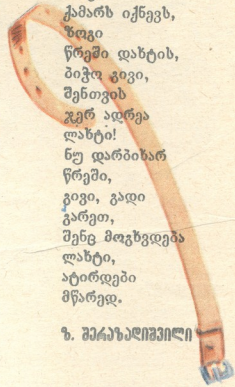 ქამარს იქნევს,
ზოგი
წრეში დახტის,
ბიჭო გივი,
შენთვის
ჯერ ადრეა
ლახტი!
ნუ დარბიხარ
წრეში,
გივი, გადი
გარეთ,
შენც მოგხვდება
ლახტი,
ატირდები
მწარედ.
ზ. შერაზადიშვილი